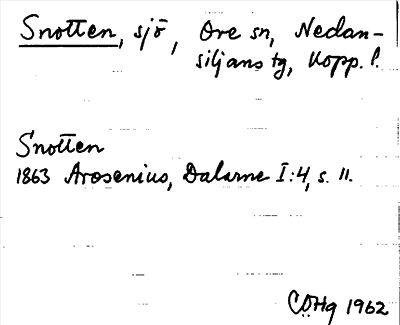 Snotten, sjö, Ore sn, Nedan-
siljans tg, Kopp. l.
Snotten
1863 Arosenius, Dalarne I:4, s. 11.
CÖHg 1962